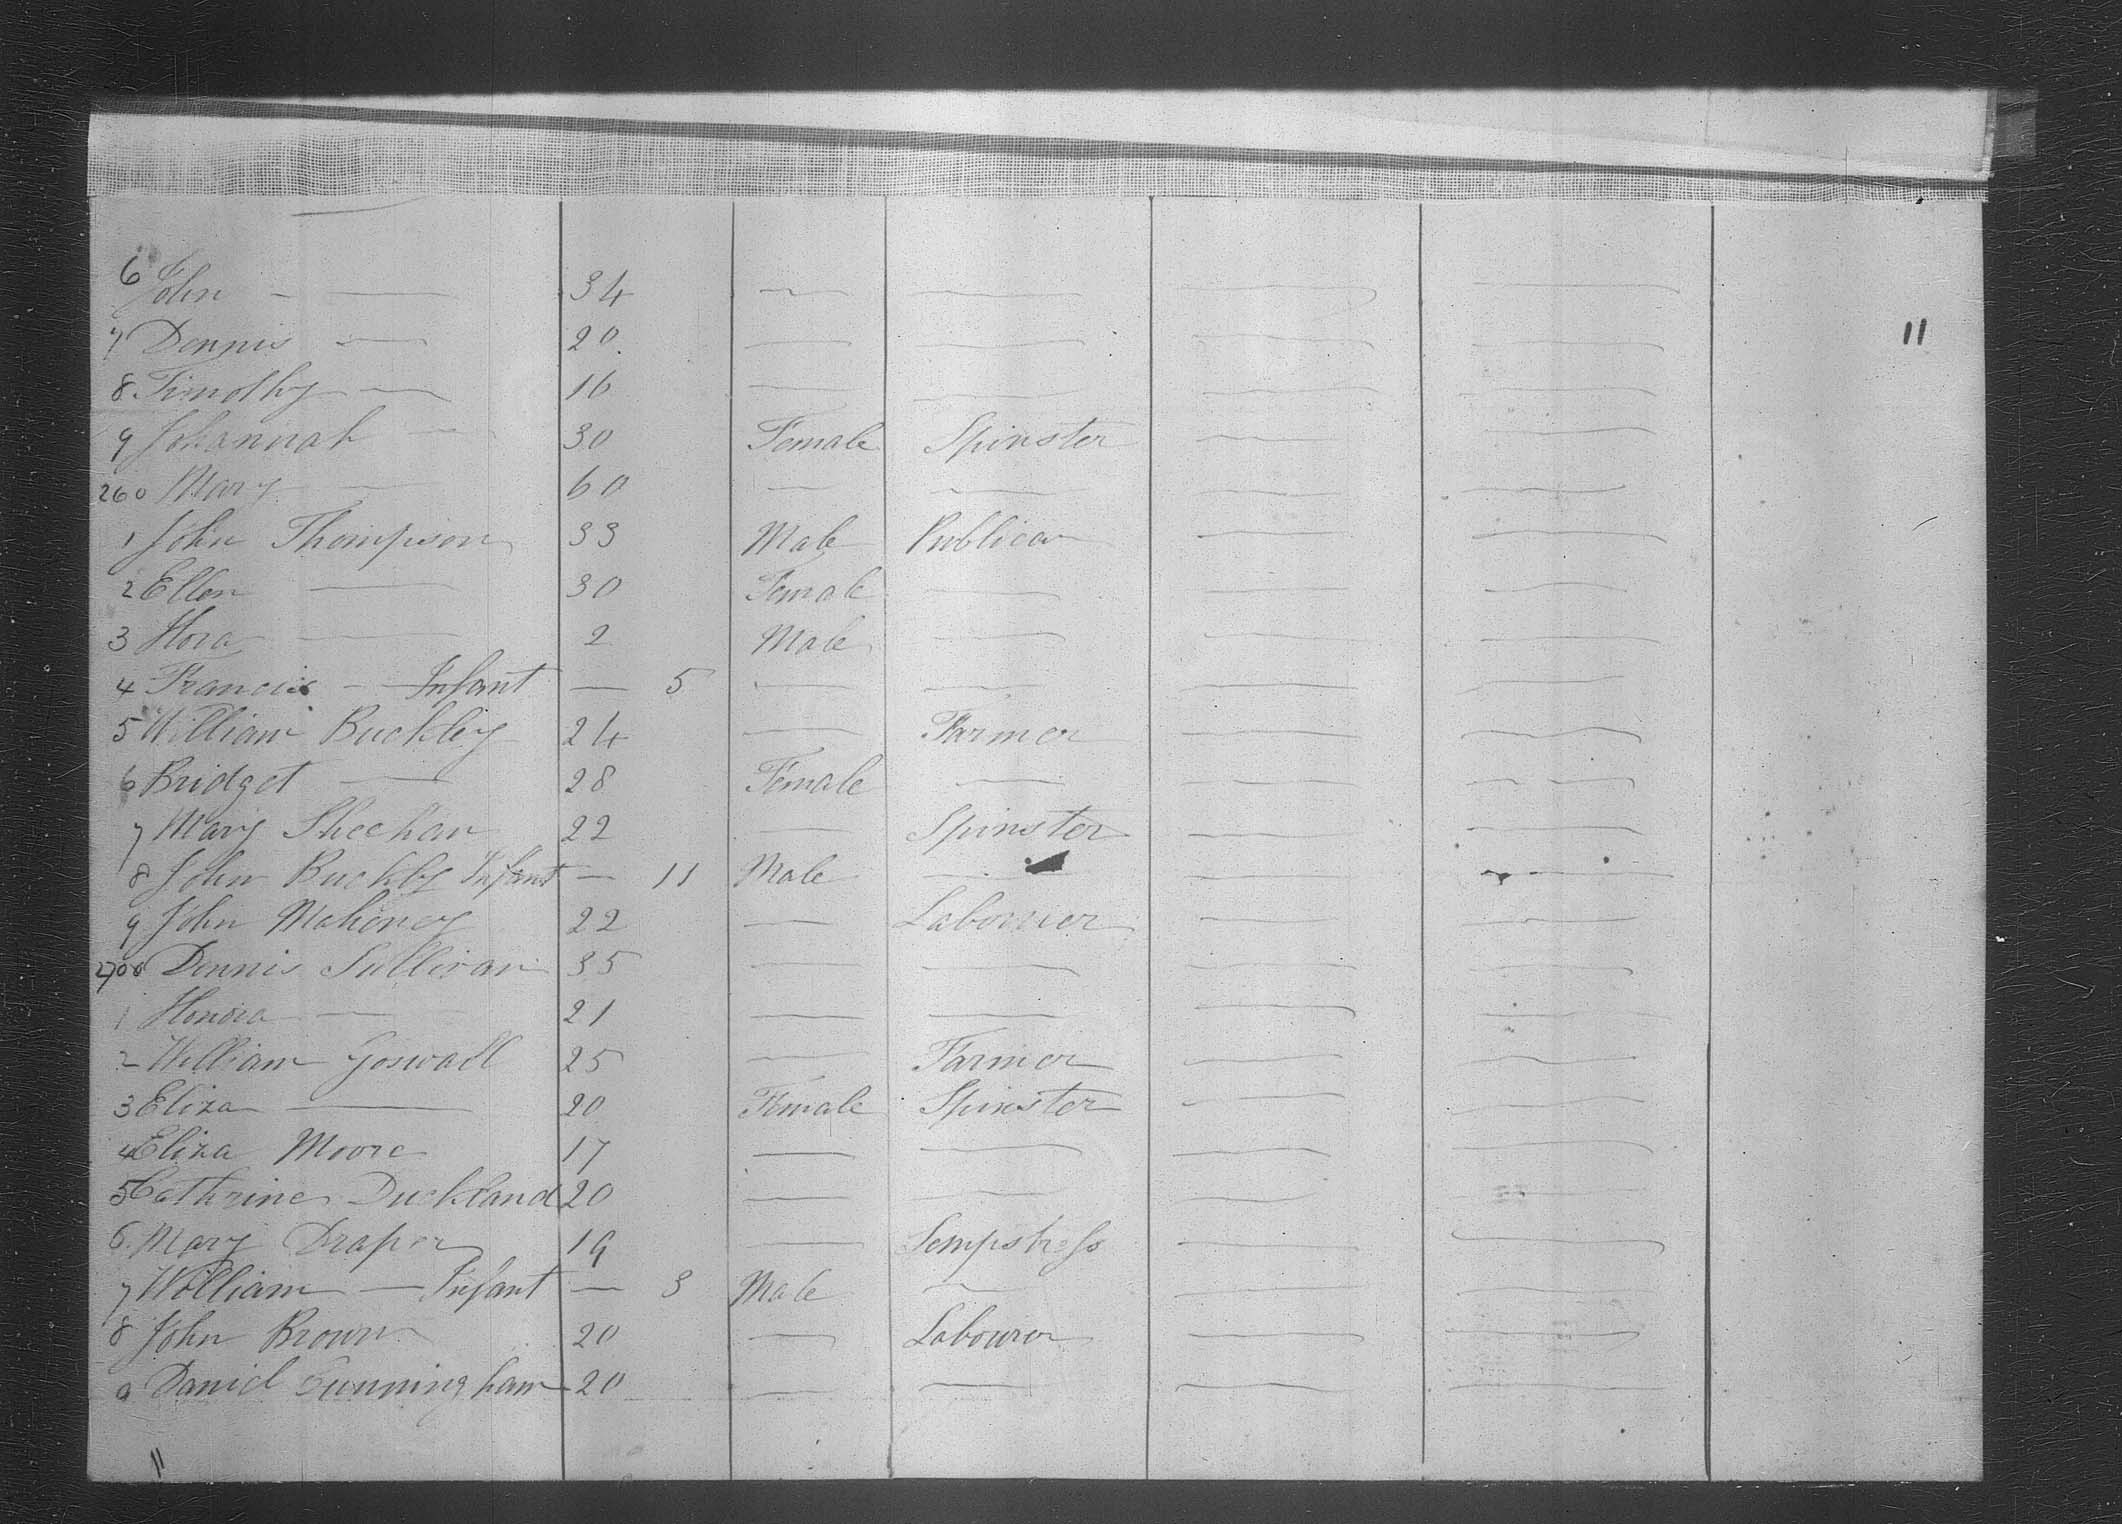 6 John — — 34 — — — —
11
7 Dennis — 20 — — — —
8 Timothy — 16 — — — —
9 Johannah — 30 Female Spinster — —
260 Mary — 60 — — — —
1 John Thompson 33 Male Publican — —
2 Ellen — 30 Female — — —
3 Hora — 2 Male — — —
4 Francis — Infant — 5 — — — —
5 William Buckley 24 — Farmer — —
6 Bridget — 28 Female — — —
7 Mary Sheehan 22 — Spinster — —
8 John Buckley Infant — 11 Male — — —
9 John Mahoney 22 — Labourer — —
270 Dennis Sullivan 35 — — — —
1 Honora — 21 — — — —
2 William Goswall 25 — Farmer — —
3 Eliza — 20 Female Spinster — —
4 Eliza Moore 17 — — — —
5 Cathrine Duckland 20 — — — —
6 Mary Draper 19 — Sempstress — —
7 William — Infant — 3 Male — — —
8 John Brown 20 — Labourer — —
9 Daniel Cunningham 20 — — — —
11